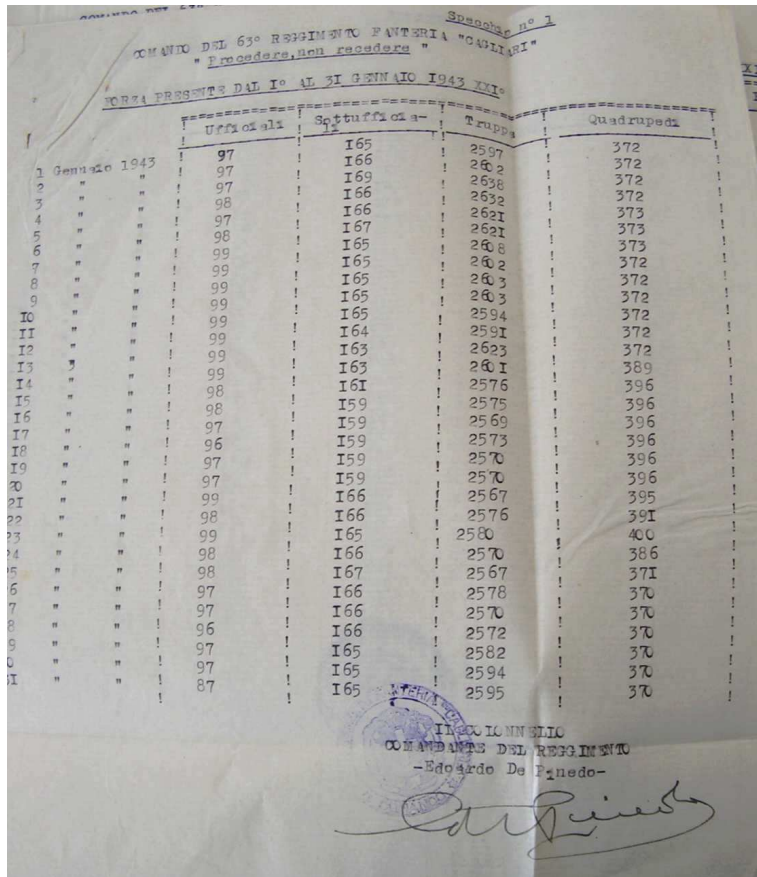 COMANDO DEL
Specchio n° 1
COMANDO DEL 63° REGGIMENTO FANTERIA "CAGLIARI"
" Procedere,non recedere "
FORZA PRESENTE DAL I° AL 3I GENNAIO I943 XXI°
Ufficiali ! Sottufficia-li ! Truppa ! Quadrupedi
1 Gennaio 1943 ! 97 ! I65 ! 2597 ! 372 !
2 " " ! 97 ! I66 ! 2602 ! 372 !
3 " " ! 97 ! I69 ! 2638 ! 372 !
4 " " ! 98 ! I66 ! 2632 ! 372 !
5 " " ! 97 ! I66 ! 262I ! 373 !
6 " " ! 98 ! I67 ! 262I ! 373 !
7 " " ! 99 ! I65 ! 2608 ! 373 !
8 " " ! 99 ! I65 ! 2602 ! 372 !
9 " " ! 99 ! I65 ! 2603 ! 372 !
I0 " " ! 99 ! I65 ! 2603 ! 372 !
II " " ! 99 ! I65 ! 2594 ! 372 !
I2 " " ! 99 ! I64 ! 259I ! 372 !
I3 " " ! 99 ! I63 ! 2623 ! 372 !
I4 " " ! 99 ! I63 ! 260I ! 389 !
I5 " " ! 98 ! I6I ! 2576 ! 396 !
I6 " " ! 98 ! I59 ! 2575 ! 396 !
I7 " " ! 97 ! I59 ! 2569 ! 396 !
I8 " " ! 96 ! I59 ! 2573 ! 396 !
I9 " " ! 97 ! I59 ! 2570 ! 396 !
20 " " ! 97 ! I59 ! 2570 ! 396 !
2I " " ! 99 ! I66 ! 2567 ! 395 !
22 " " ! 98 ! I66 ! 2576 ! 39I !
23 " " ! 99 ! I65 ! 2580 ! 400 !
24 " " ! 98 ! I66 ! 2570 ! 386 !
5 " " ! 98 ! I67 ! 2567 ! 37I !
6 " " ! 97 ! I66 ! 2578 ! 370 !
7 " " ! 97 ! I66 ! 2570 ! 370 !
8 " " ! 96 ! I66 ! 2572 ! 370 !
9 " " ! 97 ! I65 ! 2582 ! 370 !
0 " " ! 97 ! I65 ! 2594 ! 370 !
3I " " ! 87 ! I65 ! 2595 ! 370 !
IL COLONNELLO
COMANDANTE DEL REGGIMENTO
-Edoardo De Pinedo-